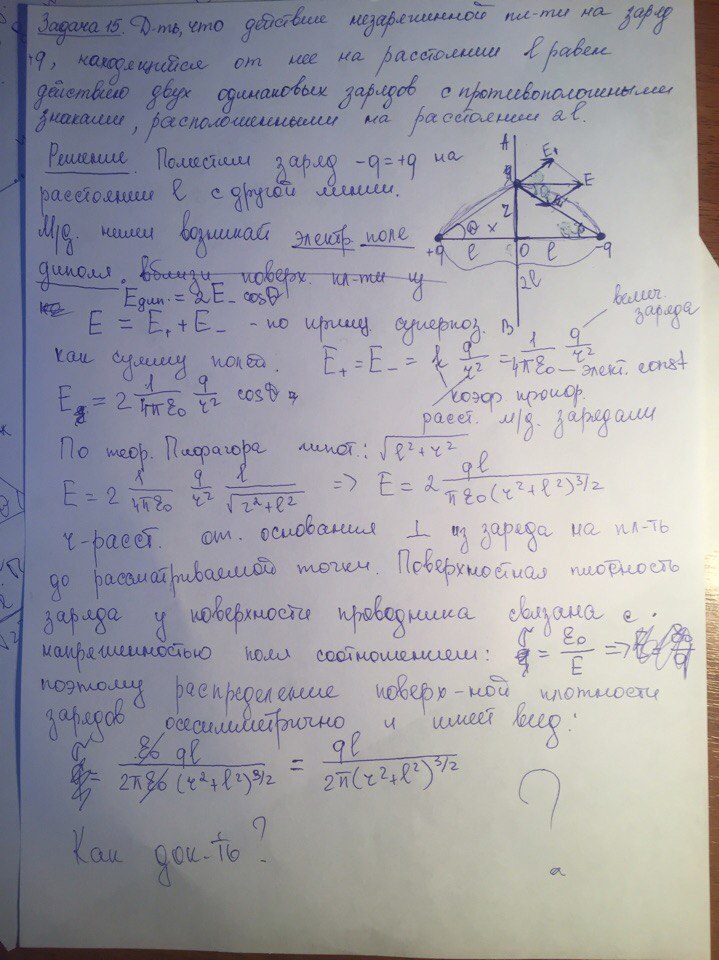 Задача 15. Д-ть, что действие незаряженной пл-ти на заряд
+q, находящийся от нее на расстоянии l равен
действию двух одинаковых зарядов с противоположными
знаками, расположенными на расстоянии 2l.
Решение. Поместим заряд -q=+q на
расстоянии l с другой линии.
М/д. ними возникает электр поле
диполя. вблизи поверх. пл-ти
Eдип. = 2E_ cosθ
E = E₊ + E₋ - по принц. суперпоз.
как сумму полей. E₊ = E₋ = k q/r² = 1/4πε₀ q/r²
велич. заряда
элект. const
коэф. пропор.
расст. м/д. зарядами
E = 2 1/4πε₀ q/r² cosθ
По теор. Пифагора гипот.: √(l²+r²)
E = 2 1/4πε₀ q/r² l/√(r²+l²) => E = 2 ql/πε₀(r²+l²)^3/2
r-расст. от. основания ⊥ из заряда на пл-ть
до рассматриваемой точки. Поверхностная плотность
заряда у поверхности проводника связана с
напряженностью поля соотношением: σ = ε₀/E =>
поэтому распределение поверх-ной плотности
зарядов осесимметрично и имеет вид:
σ = ε₀ ql/2πε₀(r²+l²)^3/2 = ql/2π(r²+l²)^3/2
Как док-ть?
?
A
E₊
E
θ
r
x
+q
l
O
l
-q
2l
B